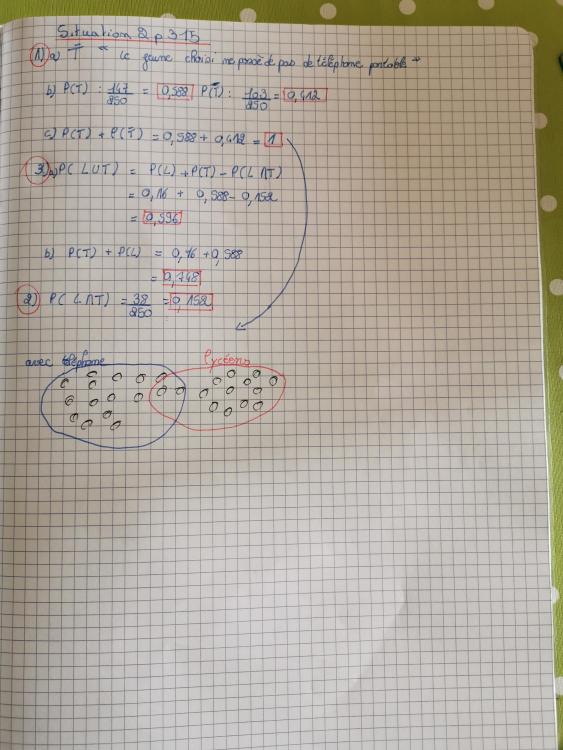 Situation 2 p 315
1) a) T̅ " le jeune choisi ne possède pas de téléphone portable "
b) P(T) : 147/250 = 0,588 P(T̅) : 103/250 = 0,412
c) P(T) + P(T̅) = 0,588 + 0,412 = 1
3) a) P( L ∪ T) = P(L) + P(T) - P(L ∩ T)
= 0,16 + 0,588 - 0,152
= 0,596
b) P(T) + P(L) = 0,16 + 0,588
= 0,748
2) P( L ∩ T) = 38/250 = 0,152
avec téléphone lycéens